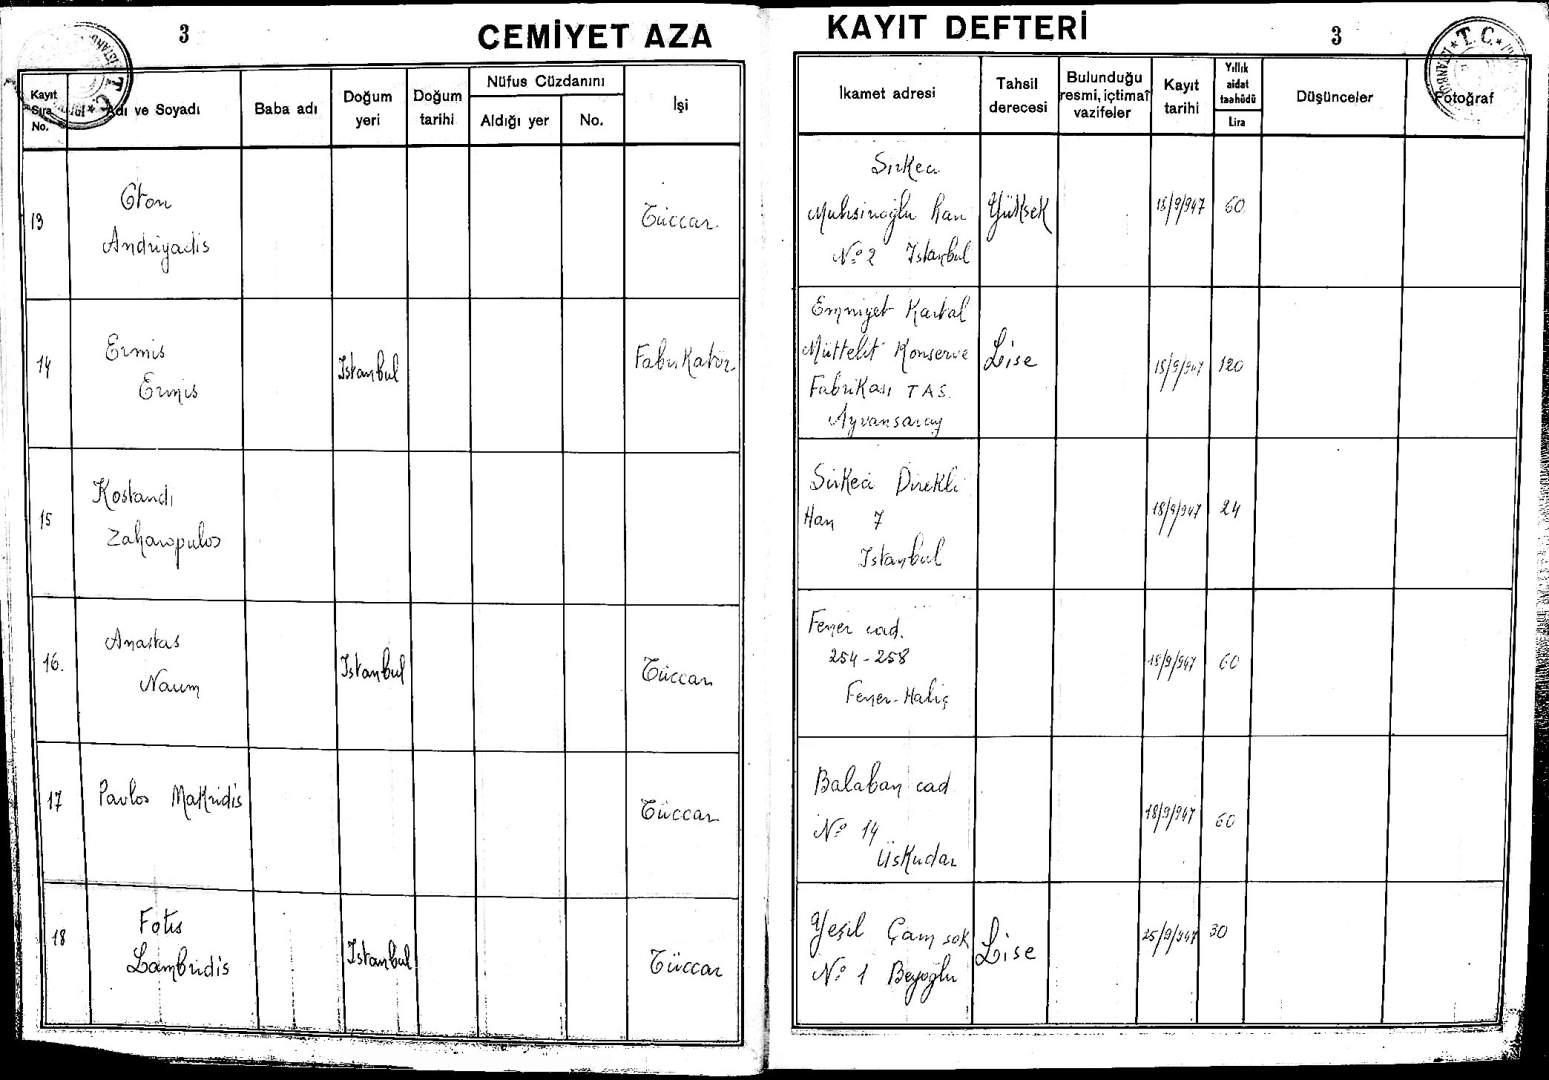 3
CEMİYET AZA
KAYIT DEFTERİ
3
Kayıt
Sıra
No.
Adı ve Soyadı
Baba adı
Doğum
yeri
Doğum
tarihi
Nüfus Cüzdanını
Aldığı yer
No.
İşi
İkamet adresi
Tahsil
derecesi
Bulunduğu
resmi, içtimaî
vazifeler
Kayıt
tarihi
Yıllık
aidat
taahüdü
Lira
Düşünceler
Fotoğraf
T. C.
T. C.
13
Oton
Andriyadis
Tüccar
Sirkeci
Muhsinoğlu han
No 2 Istanbul
Yüksek
15/9/947
60
14
Ermis
Ermis
Istanbul
Fabrikatör
Emniyet Kartal
Müttehit Konserve
Fabrikası TAS.
Ayvansaray
Lise
15/9/947
120
15
Kostandi
Zaharopulos
Sirkeci Direkli
Han 7
Istanbul
18/9/947
24
16.
Anastas
Naum
Istanbul
Tüccar
Fener cad.
254-258
Fener-Haliç
18/9/947
60
17
Pavlos Makridis
Tüccar
Balaban cad
No 14
Üsküdar
18/9/947
60
18
Fotis
Lambridis
Istanbul
Tüccar
Yeşil Çam sok
No 1 Beyoğlu
Lise
25/9/947
30